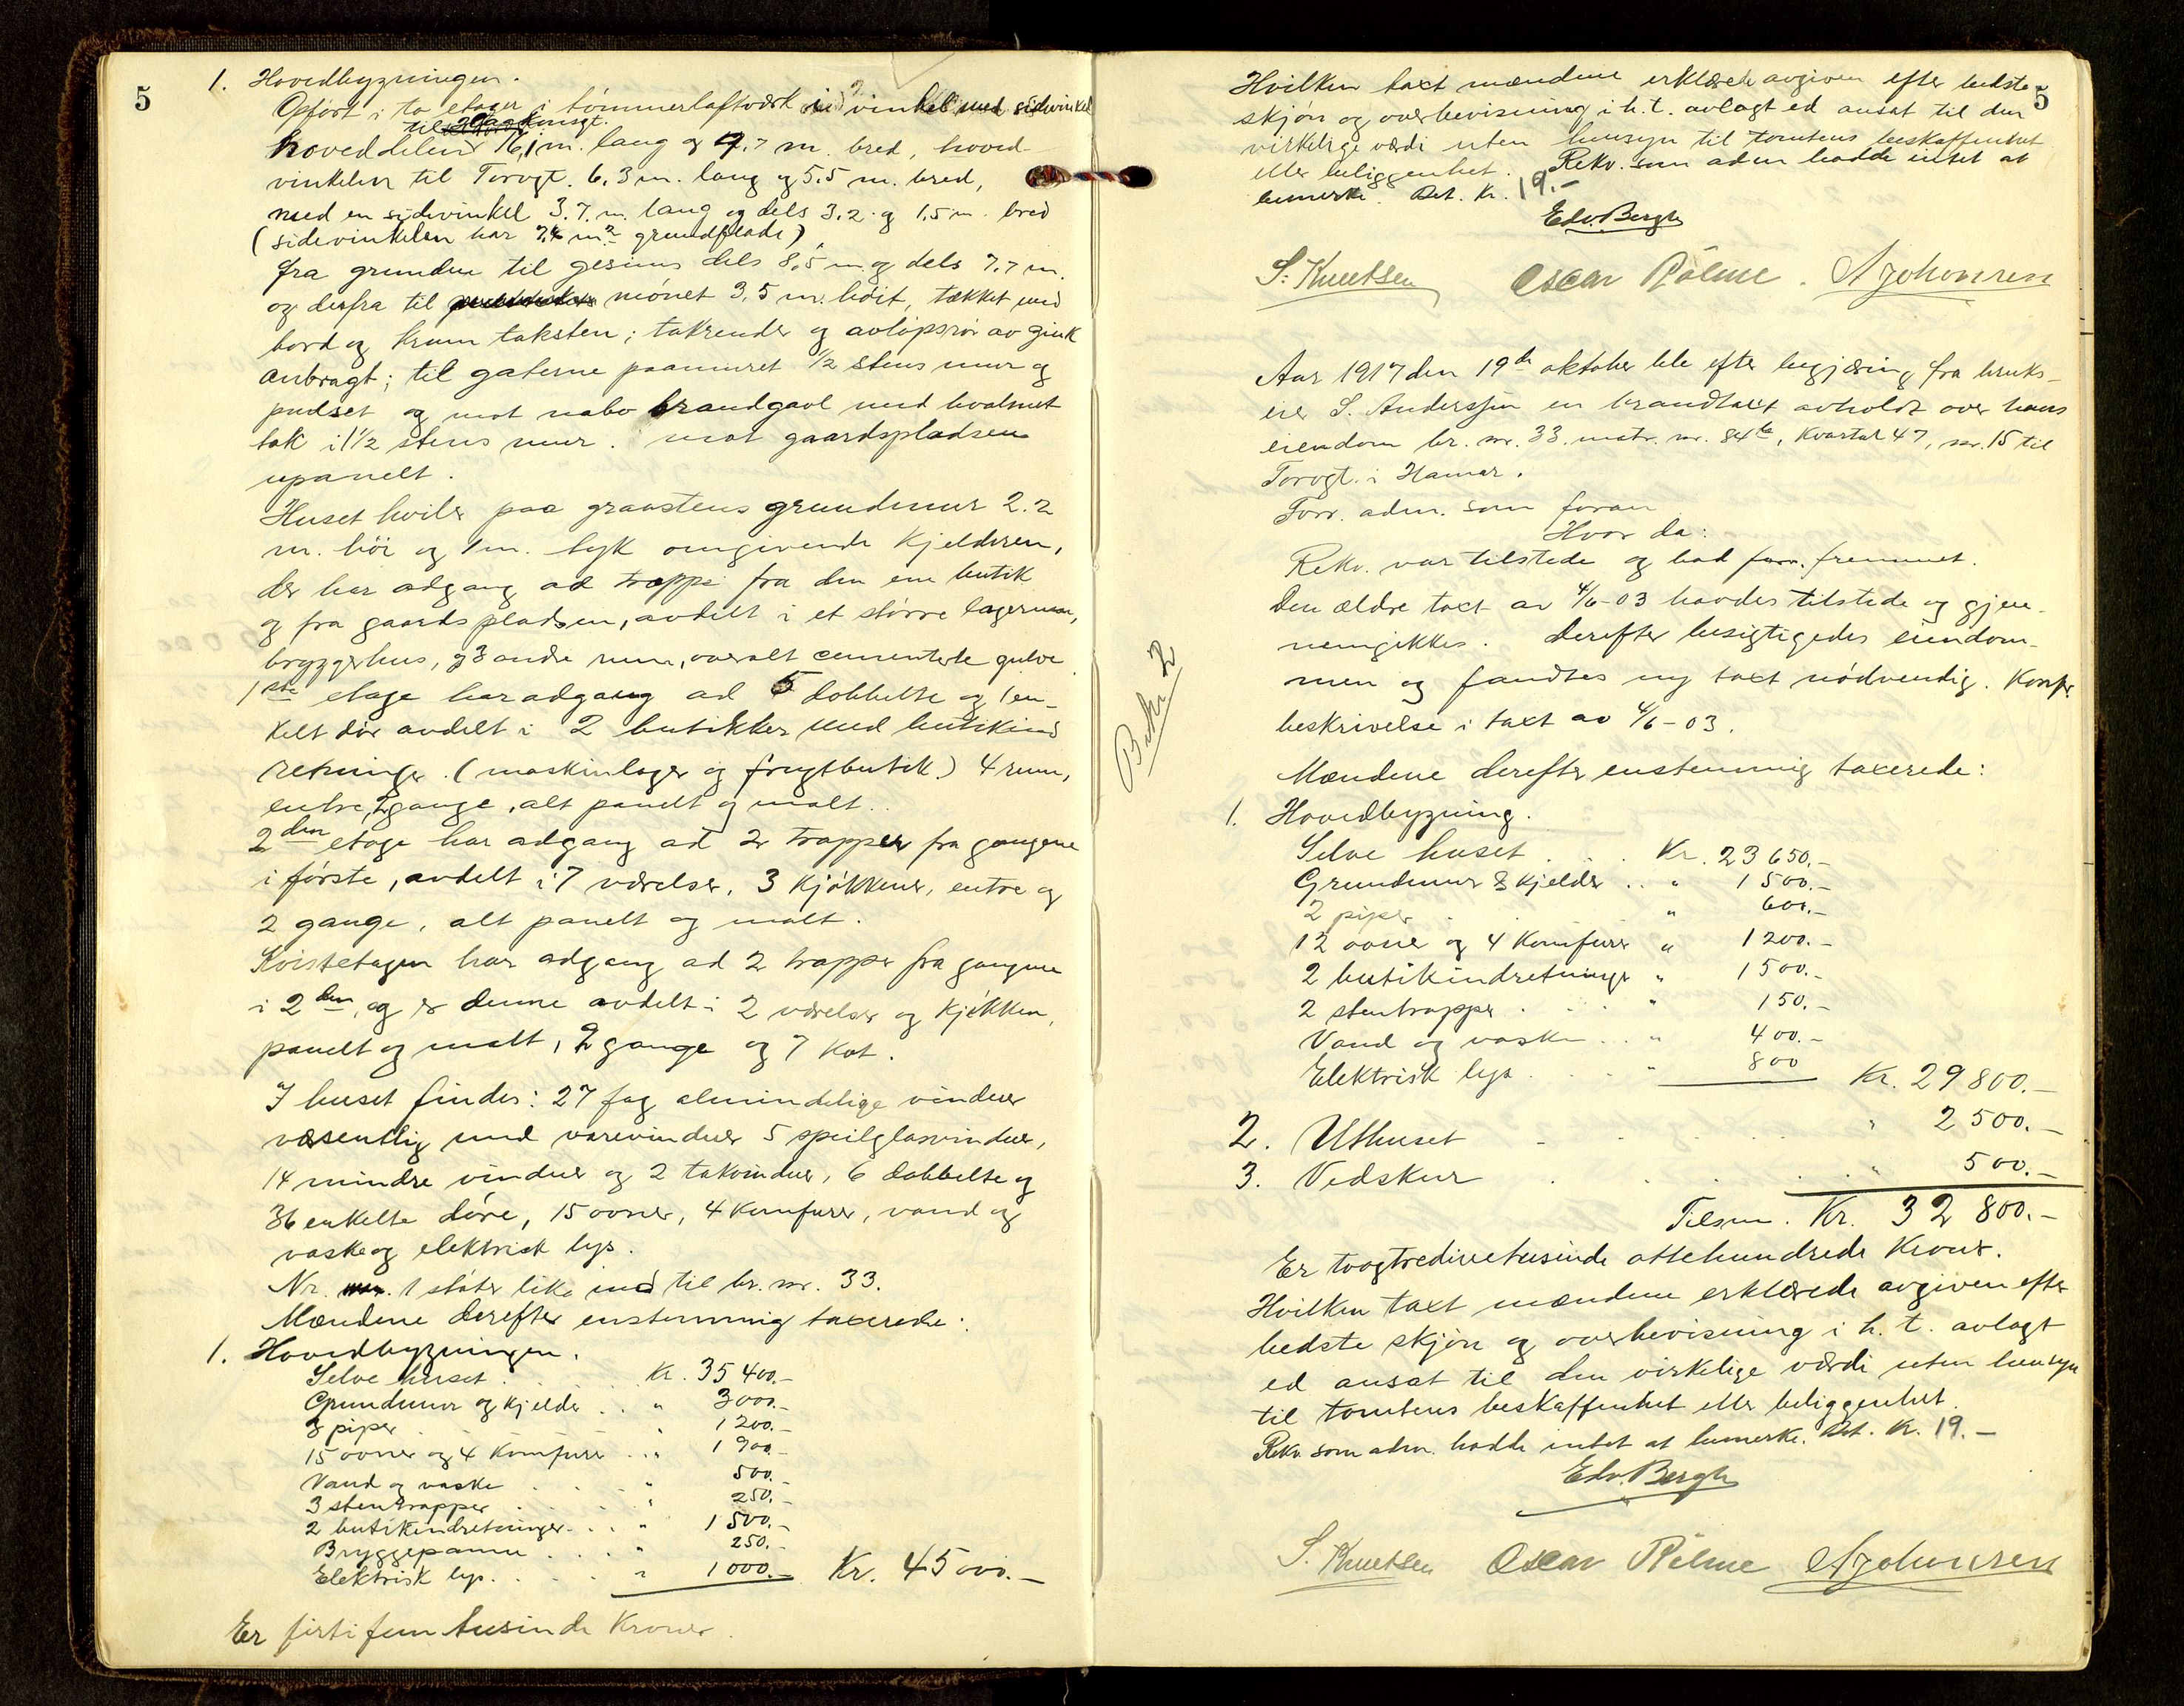 5
1. Hovedbygningen.
Opført i to etager i tømmerlaftværk i 2 vinkel med sidevinkel
til Grønnegt.
hoveddelen 16,1 m. lang og 9.7 m. bred, hoved-
vinkelen til Torvgt. 6.3 m. lang og 5.5 m. bred,
med en sidevinkel 3.7. m. lang og dels 3.2. og 1,5 m. bred
(sidevinkelen har 7,4 m² grundflade),
fra grunden til gesims dels 8,5 m. og dels 7.7 m.
og derfra til mønet 3,5 m. høit, tækket med
bord og krum taksten; takrender og avløpsrør av zink
anbragt; til gaterne paamuret 1/2 stens mur og
pudset og mot nabo brandgavl med hvalmet
tak i 1 1/2 stens mur. mot gaardspladsen
upanelt.
Huset hviler paa graastens grundmur 2.2
m. høi og 1 m. tyk omgivende kjelderen,
der har adgang ad trappe fra den ene butik
og fra gaardspladsen, avdelt i et større lagerrum,
bryggerhus, og 3 andre rum, overalt cementerte gulve
1ste etage har adgang ad 5 dobbelte og 1 en-
kelt dør avdelt i 2 butikker med butikind
retninger. (maskinlager og frugtbutik.) 4 rum,
entre, 2 gange, alt panelt og malt..
2den etage har adgang ad 2 trapper fra gangene
i første, avdelt i 7 værelser, 3 kjøkkener, entre og
2 gange, alt panelt og malt.
Kvistetagen har adgang ad 2 trapper fra gangene
i 2den, og er denne avdelt i 2 værelser og kjøkken,
panelt og malt, 2 gange og 7 kot.
I huset findes: 27 fag almindelige vinduer
væsentlig med varevinduer 5 speilglasvinduer,
14 mindre vinduer og 2 takvinduer, 6 dobbelte og
36 enkelte døre, 15 ovner, 4 komfurer, vand og
vaske og elektrisk lys.
Nr. 1 støter like ind til br. nr. 33.
Mændene derefter enstemmig taxerede:
1. Hovedbygningen.
Selve huset . . . Kr. 35 400.-
Grundmur og kjelder . . " 3000.-
3 piper . . . " 1 200.-
15 ovner og 4 komfurer . . " 1 900.-
Vand og vaske . . . " 500.-
3 stentrapper . . . " 250.-
2 butikindretninger . . . " 1 500.-
Bryggepanne . . . " 250.-
Elektrisk lys . . . " 1 000.- Kr. 45 000.-
Er firti fem tusinde Kroner.
5
Hvilken taxt mændene erklærede avgiven efter bedste
skjøn og overbevisning i h. t. avlagt ed ansat til den
virkelige værdi uten hensyn til tomtens beskaffenhet
eller beliggenhet. Rekv. som adm hadde intet at
bemerke. Bet. Kr. 19.-
Edv. Bergh
S. Knutsen Oscar Rölme. A Johansen
Aar 1917 den 19de oktober ble efter begjæring fra bruks-
eier S. Anderssen en brandtaxt avholdt over hans
eiendom br. nr. 33. matr. nr. 84b, Kvartal 47, nr. 15 til
Torvgt. i Hamar.
Forr. adm. som foran
Hvor da:
Rekv. var tilstede og bad forr. fremmet.
Den ældre taxt av 4/6-03 havdes tilstede og gjen-
nemgikkes. Derefter besigtigedes eiendom-
men og fandtes ny taxt nødvendig. Konfr.
beskrivelse i taxt av 4/6-03.
Mændene derefter enstemmig taxerede:
1. Hovedbygning.
Selve huset . . . Kr. 23 650.-
Grundmur & kjelder . . " 1 500.-
2 piper . . . " 600.-
12 ovner og 4 Komfurer " 1 200.-
2 butikindretninger " 1 500.-
2 stentrapper . . . " 150.-
Vand og vaske . . " 400.-
Elektrisk lys . . . " 800 Kr. 29 800.-
2. Uthuset . . . " 2 500.-
3. Vedskur . . . " 500.-
Tilsm. Kr. 32 800.-
Er toogtredivetusinde ottehundrede Kroner.
Hvilken taxt mændene erklærede avgiven efter
bedste skjøn og overbevisning i h. t. avlagt
ed ansat til den virkelige værdi uten hensyn
til tomtens beskaffenhet eller beliggenhet.
Rekv. som adm. hadde intet at bemerke. Bet. Kr. 19.-
Edv. Bergh
S. Knutsen Oscar Rölme A Johansen